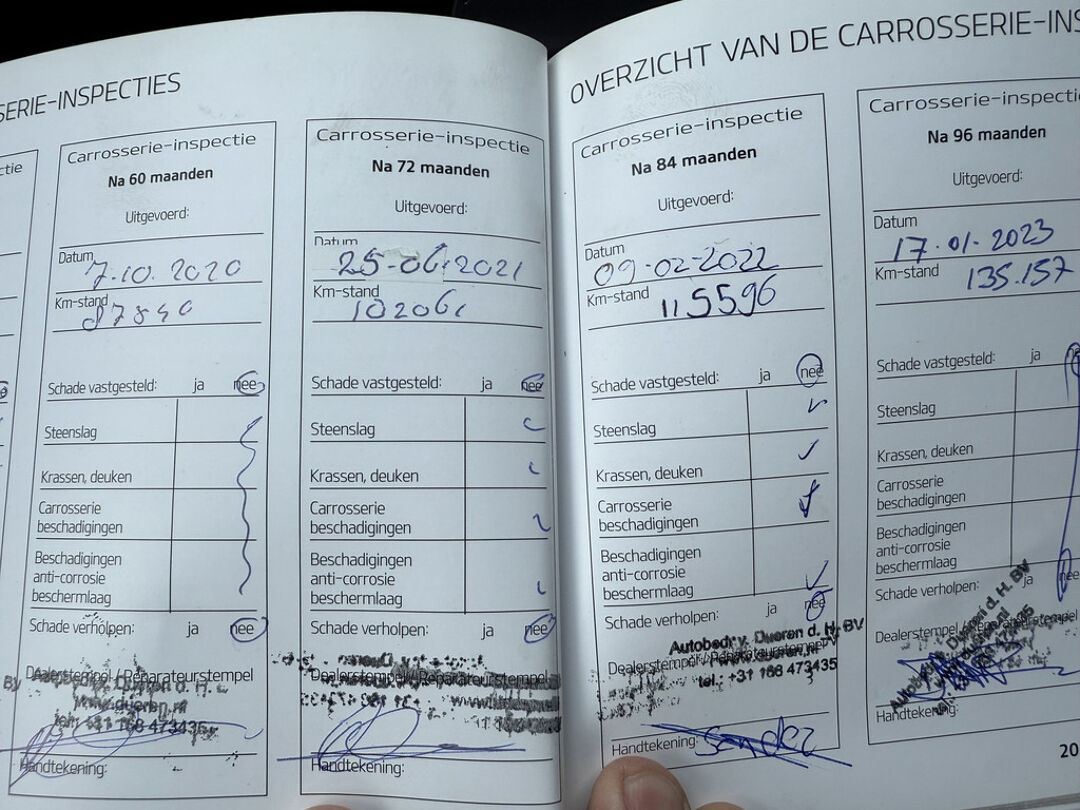 SERIE-INSPECTIES
ctie
Carrosserie-inspectie
Na 60 maanden
Uitgevoerd:
Datum 7.10.2020
Km-stand 87840
Schade vastgesteld: ja nee
Steenslag
Krassen, deuken
Carrosserie
beschadigingen
Beschadigingen
anti-corrosie
beschermlaag
Schade verholpen: ja nee
Dealerstempel / Reparateurstempel
www.dueren.nl
tel: +31 168 473435
Handtekening:
Carrosserie-inspectie
Na 72 maanden
Uitgevoerd:
Datum 25-06-2021
Km-stand 102061
Schade vastgesteld: ja nee
Steenslag
Krassen, deuken
Carrosserie
beschadigingen
Beschadigingen
anti-corrosie
beschermlaag
Schade verholpen: ja nee
Dealerstempel / Reparateurstempel
Handtekening:
OVERZICHT VAN DE CARROSSERIE-INS
Carrosserie-inspectie
Na 84 maanden
Uitgevoerd:
Datum 09-02-2022
Km-stand 115596
Schade vastgesteld: ja nee
Steenslag
Krassen, deuken
Carrosserie
beschadigingen
Beschadigingen
anti-corrosie
beschermlaag
Schade verholpen: ja nee
Autobedr. v. Dueren d. H. BV
Dealerstempel / Reparateurstempel
tel.: +31 168 473435
Handtekening: Sander
Carrosserie-inspectie
Na 96 maanden
Uitgevoerd:
Datum 17.01.2023
Km-stand 135.157
Schade vastgesteld: ja
Steenslag
Krassen, deuken
Carrosserie
beschadigingen
Beschadigingen
anti-corrosie
beschermlaag
Schade verholpen: ja nee
Dealerstempel / Reparateurstempel
Handtekening:
20